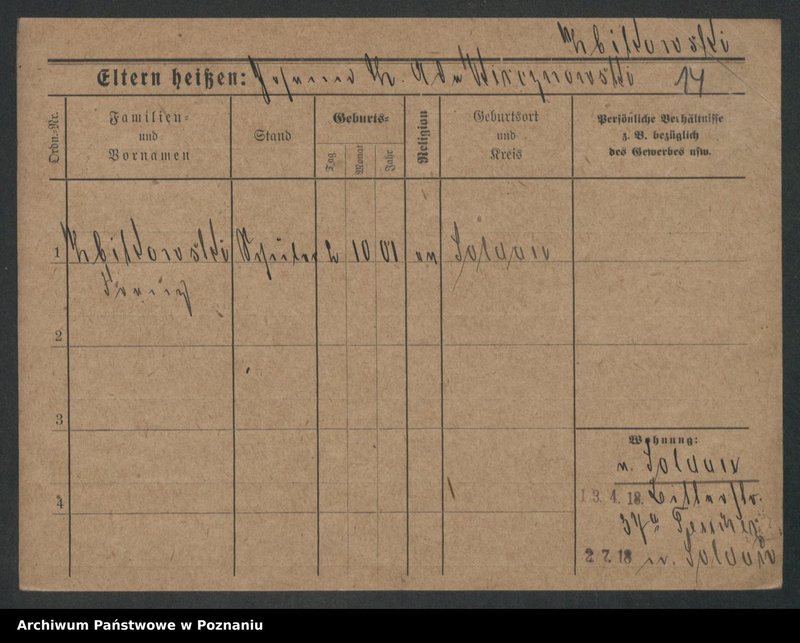 Zbikowski
Eltern heißen: Johann Z. Ada Wierznowski 14
Ordn.-Nr.
Familien=
und
Vornamen
Stand
Geburts=
Tag
Monat
Jahr
Religion
Geburtsort
und
Kreis
Persönliche Verhältnisse
z. B. bezüglich
des Gewerbes usw.
1 Zbikowski Schüler 2 10 01 ev Soldau
Franz
2
3
Wohnung:
n. Soldau
13. 4. 18. Ritterstr.
4
37a
2 7. 18 n. Soldau
Archiwum Państwowe w Poznaniu